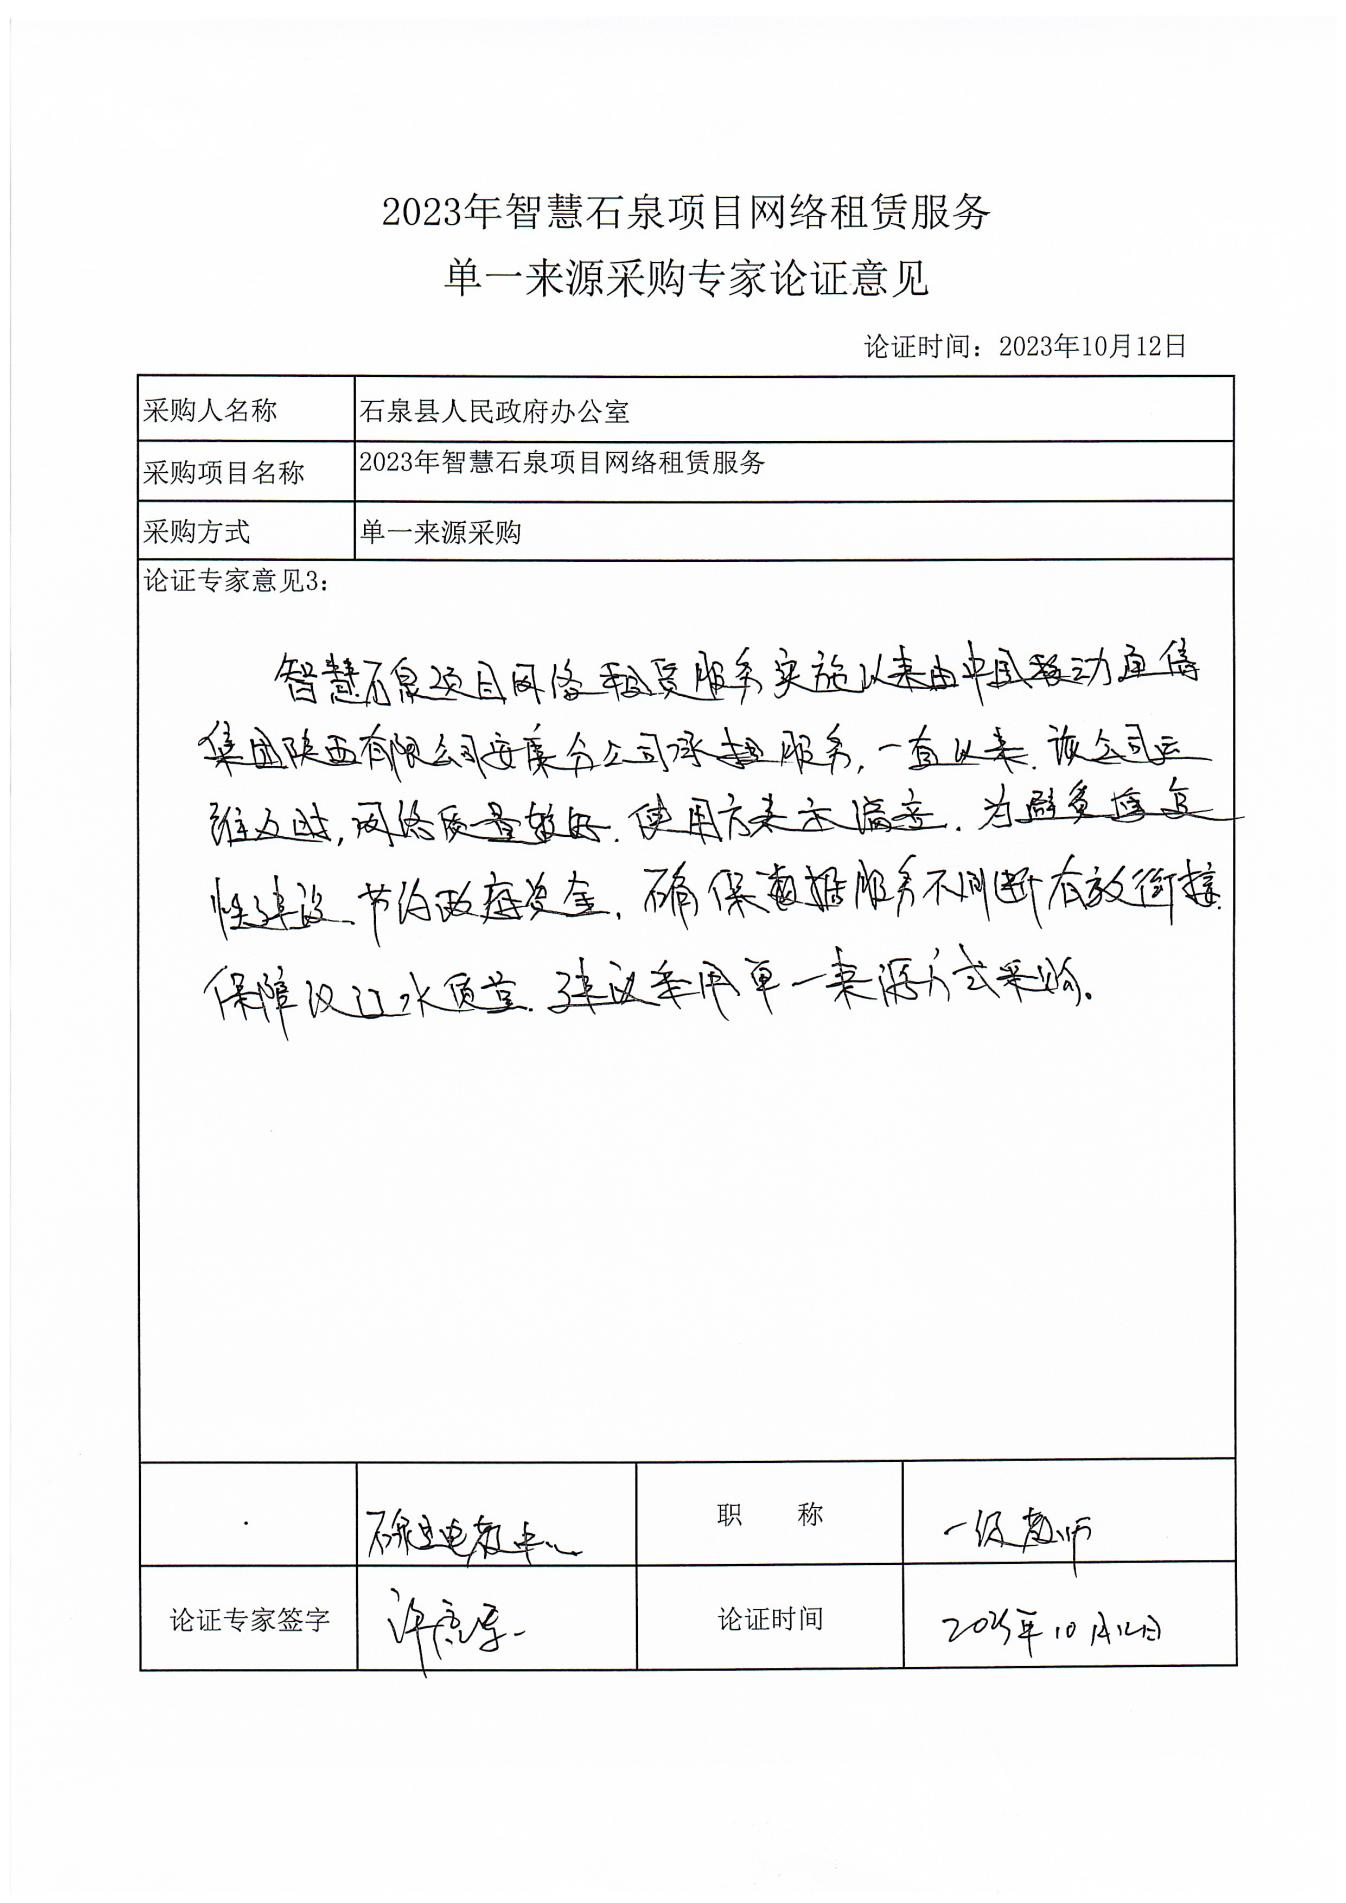 2023年智慧石泉项目网络租赁服务
单一来源采购专家论证意见
论证时间：2023年10月12日
采购人名称 石泉县人民政府办公室
采购项目名称 2023年智慧石泉项目网络租赁服务
采购方式 单一来源采购
论证专家意见3：
智慧石泉项目网络租赁服务实施以来由中国移动通信
集团陕西有限公司安康分公司承担服务，一直以来，该公司运
维及时，网络质量较好，使用方表示满意，为避免重复
性建设、节约政府资金，确保数据服务不间断有效衔接，
保障汉江水质量，建议采用单一来源方式采购。
石泉县电教中心 职 称 一级教师
论证专家签字 许 论证时间 2023年10月12日